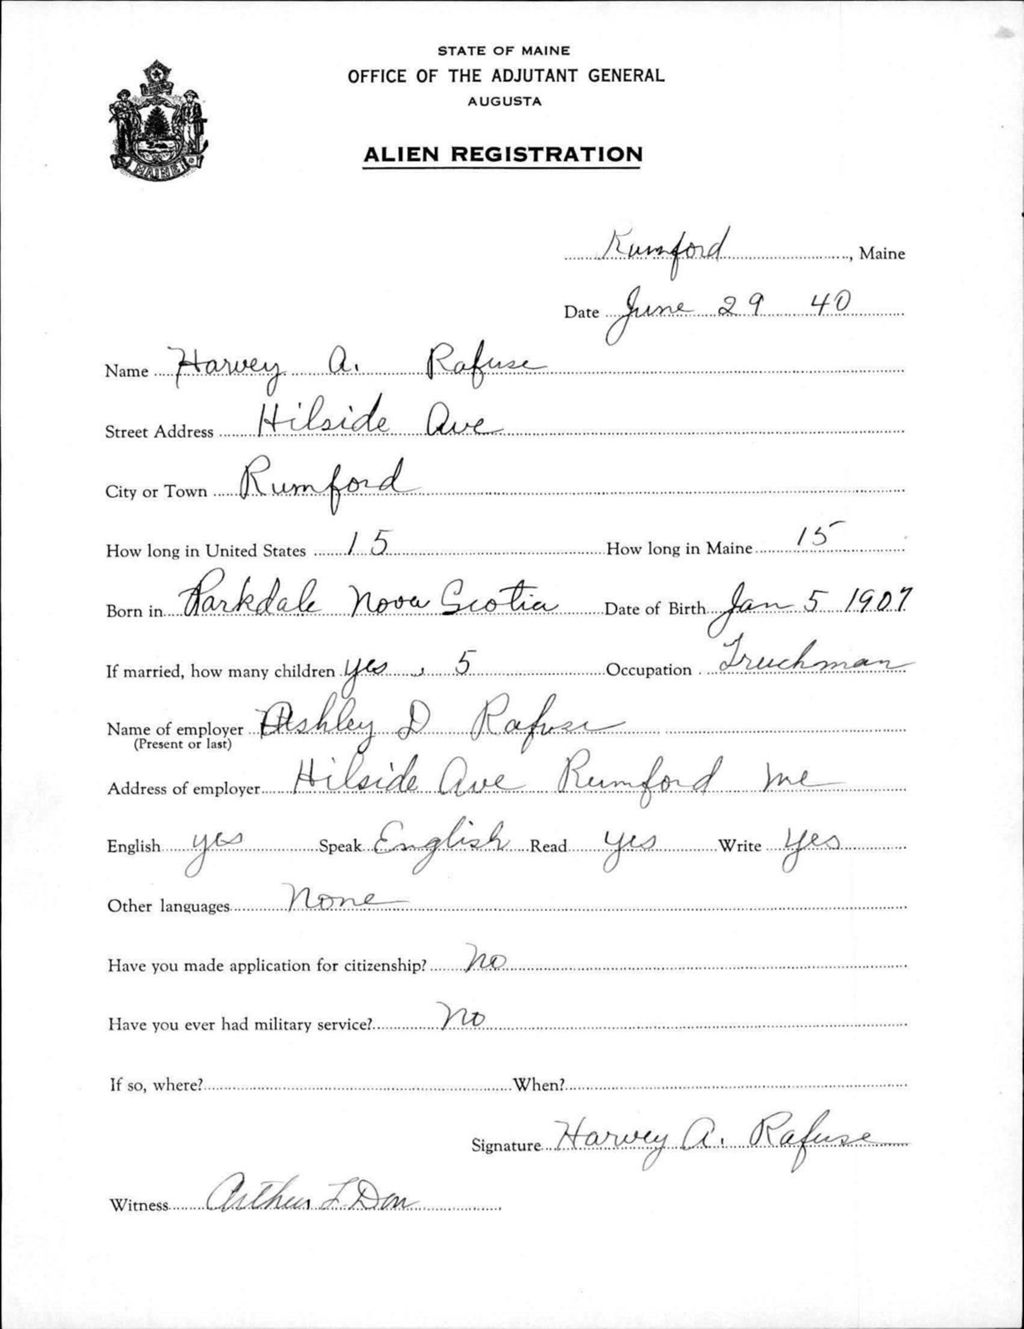 STATE OF MAINE
OFFICE OF THE ADJUTANT GENERAL
AUGUSTA
ALIEN REGISTRATION
Rumford, Maine
Date June 29 40
Name Harvey A. Rafuse
Street Address Hilside Ave
City or Town Rumford
How long in United States 15 How long in Maine 15
Born in Parkdale Nova Scotia Date of Birth Jan 5 1907
If married, how many children yes, 5 Occupation Truckman
Name of employer Ashley D Rafuse
(Present or last)
Address of employer Hilside Ave Rumford Me
English yes Speak English Read yes Write yes
Other languages None
Have you made application for citizenship? No
Have you ever had military service? No
If so, where? When?
Signature Harvey A. Rafuse
Witness Arthur L